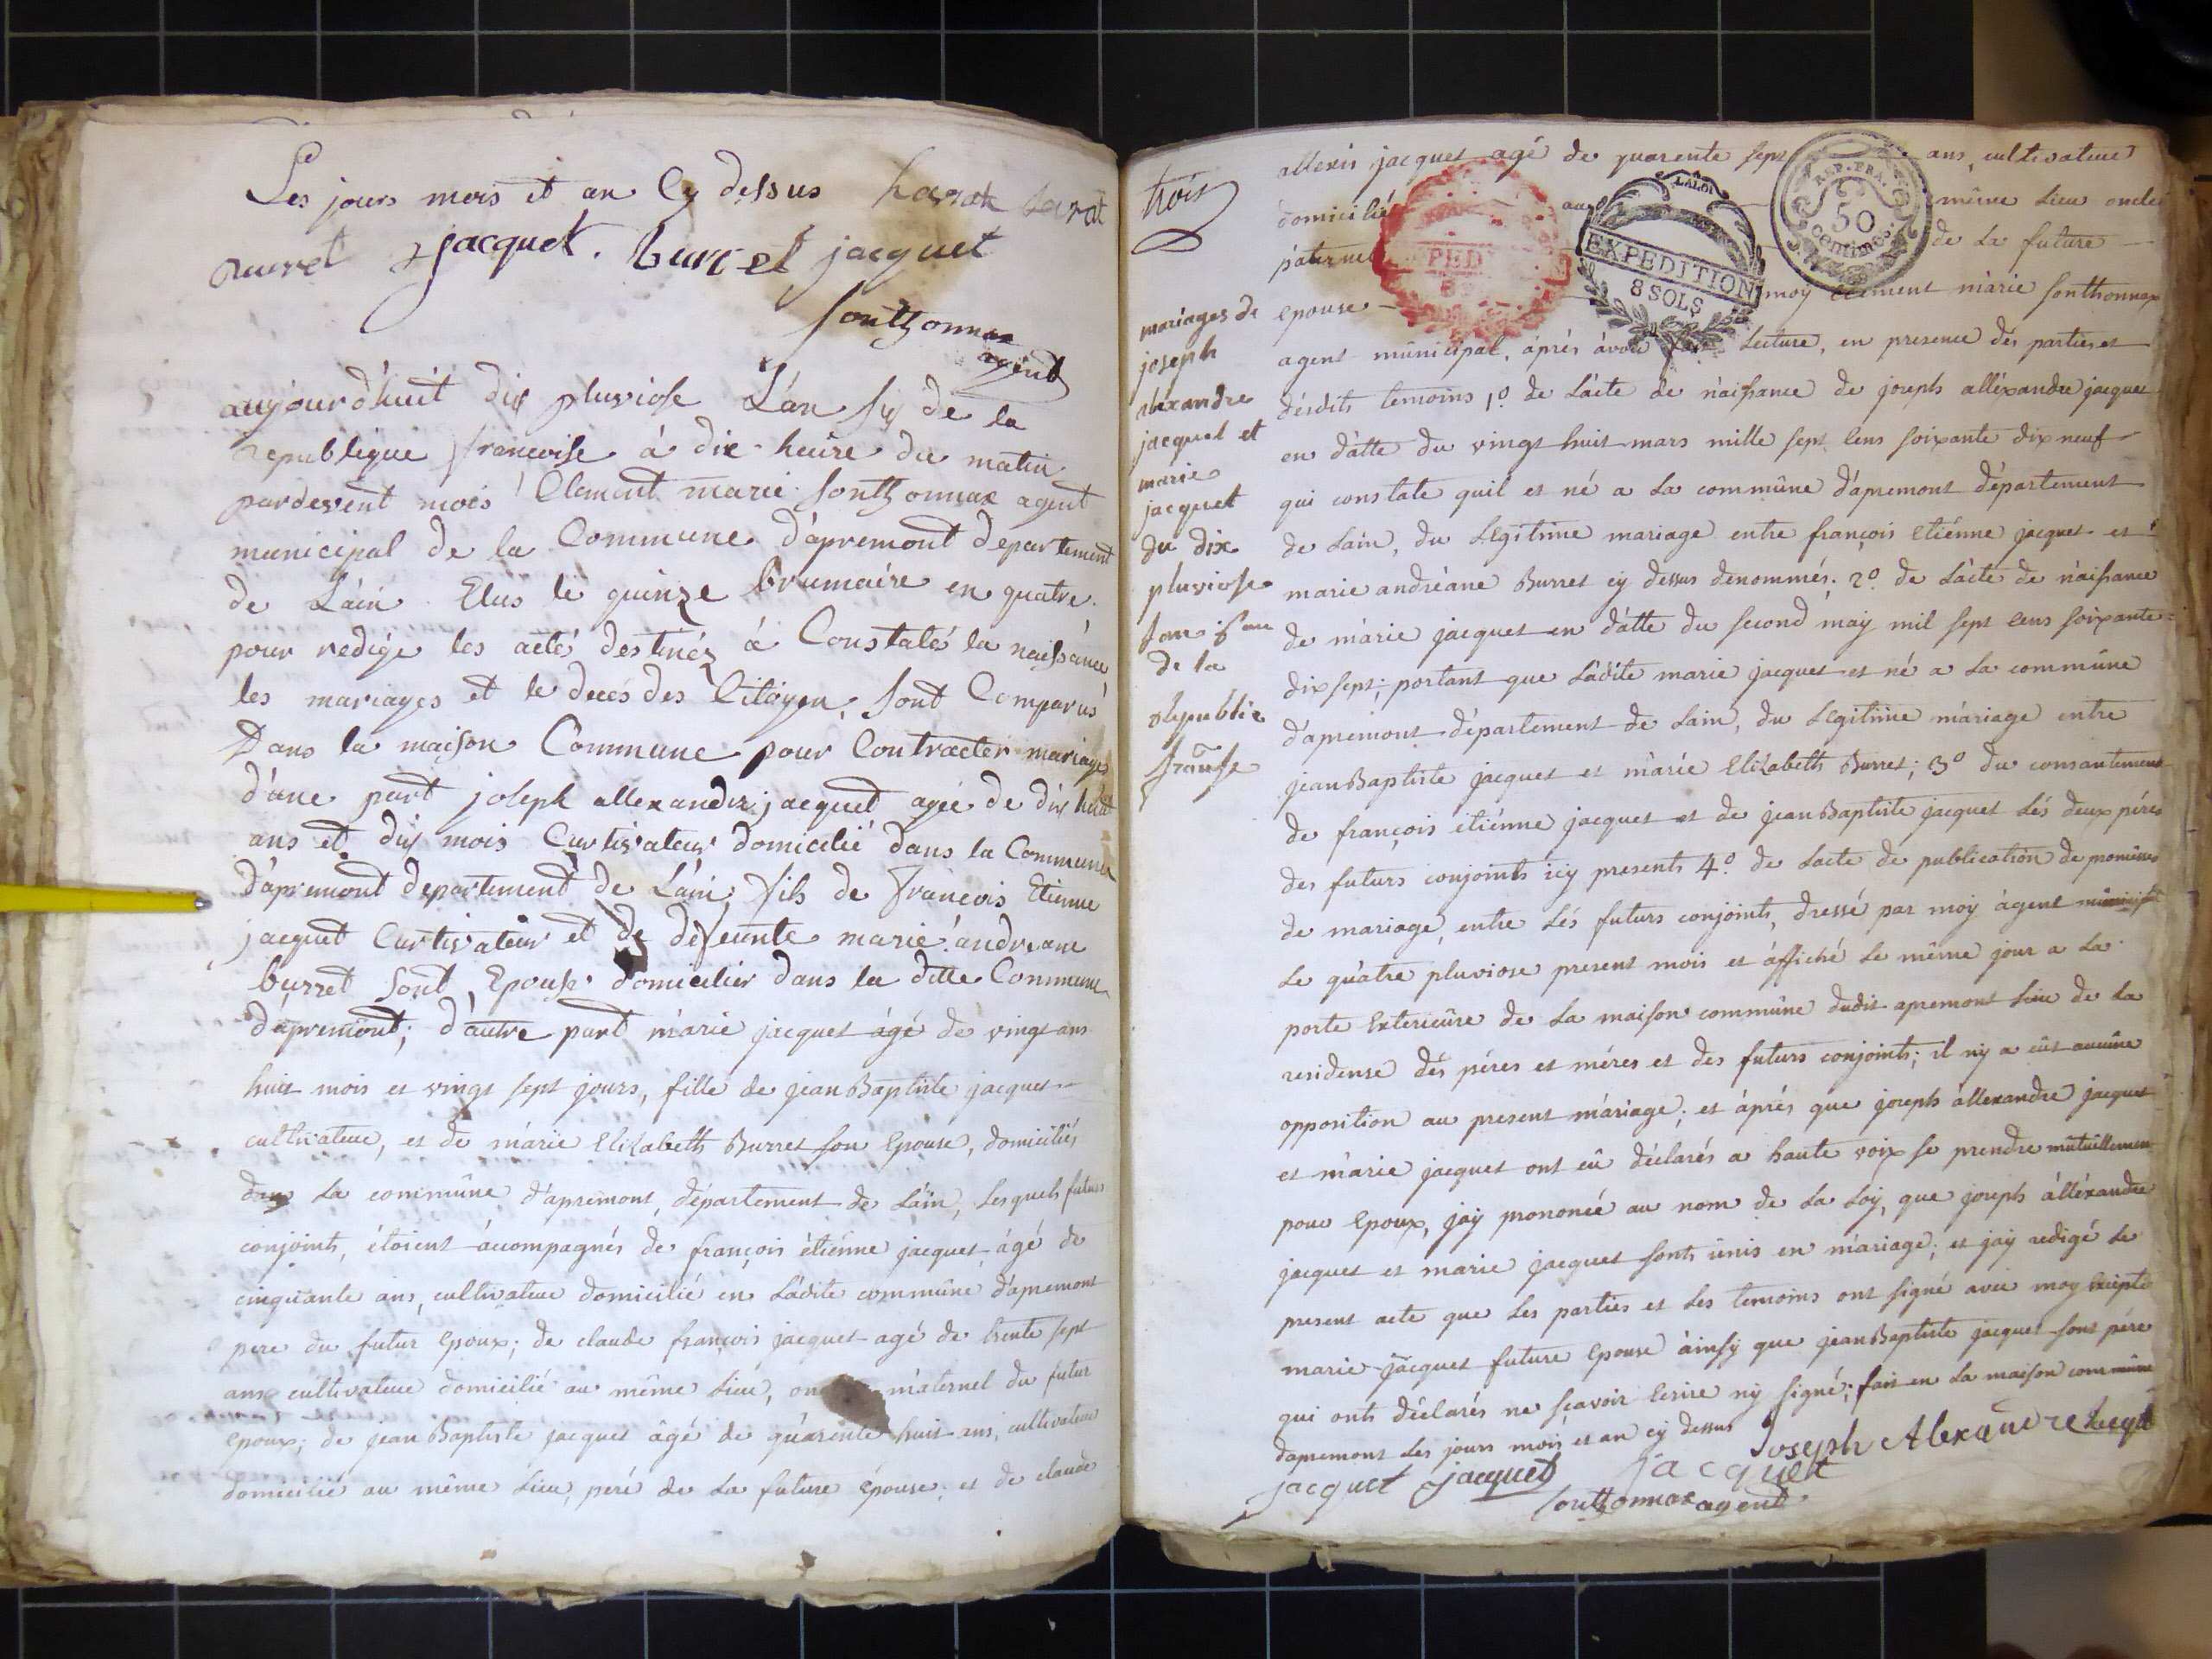 Les jours mois et an Cy dessus harat harat
jacquet. Burret jacquet
sonthonnax
agent
aujourd'huit dix pluviose L'an six de la
republique francoise á dix heure du matin
pardevent mois Clement marie sonthonnax agent
municipal de la Commune d'apremont departement
de L'ain Elus le quinze brumaire en quatre
pour redigé les actés destinéz á Constatés la naissance
les mariages et le decés des Citoyen, sont Comparus
Dans la maison Commune pour Contracter mariage
d'une part joseph allexandre jacquet agée de dix huit
ans et dix mois Curtivateur domicilié dans la Commune
d'apremont departement de L'ain; fils de francois Etienne
jacquet Curtivateur et de defeunte marie andreane
burret sont Epouse domicilier dans la ditte Commune
d'apremont; d'autre part marie jacquet ágé de vingt ans
huit mois et vingt sept jours, fille de jean Baptiste jacquet
cultivateur, et de marie Elizabeth Burret son Epouse, domiciliés
dans La commûne d'apremont, département de L'ain, Lesquels futurs
conjoints, étoient ácompagnés de françois étiénne jacquet ágé de
cinquante ans, cultivateur domicilié en Ladite commûne d'apremont
pere du futur Epoux; de claude françois jacquet agé de trente sept
ans cultivateur domicilié au même Lieu, maternel du futur
epoux; de jean Baptiste jacquet âgé de quarente huit ans, cultivateur
domicilié au même Lieu, peré de La future épouse; et de claude
trois
mariages de
joseph
alexandre
jacquet et
marie
jacquet
du dix
pluviose
de la
republic
allexis jacquet agé de quarente sept ans, cultivateur
domicilié au même Lieu oncle
paternel de La future
epouse moy clement marie sonthonnax
REP. FRA.
50
centimes
LA LOI
EXPEDITION
8 SOLS
agent municipal, áprés ávoir fait Lecture, en presence dés parties et
désdits temoins 1º de L'acte de naissance de joseph alléxandre jacquet
en d'atte du vingt huit mars mille sept Cens soixante dix neuf
qui constate quil et né a La commûne d'apremont département
de Lain, du Legitime mariage entre françois Etiénne jacquet et
marie andréane Burret cy dessus denommés; 2º de L'acte de naissance
de marie jacquet en d'atte du second may mil sept cens soixante
dix sept; portant que Ladite marie jacquet et né a La commûne
d'apremont département de Lain, du Legitime mariage entre
jean Baptiste jacquet et marie Elizabeth Burret; 3º du consantement
de françois etiénne jacquet et de jean Baptiste jacquet Lés deux péres
des futurs conjoints icy presents 4º de Lacte de publication de promésses
de mariage, entre Lés futurs conjoints, dressé par moy ágent municipal
Le quatre pluviose present mois et áffiché Le même jour a La
porte Exterieûre de La maison commûne dudit apremont Lieu de La
residense dés péres et méres et des futurs conjoints; il ny a eût aucûne
opposition au present mariage; et áprés que joseph allexandre jacquet
et marie jacquet ont eû déclarés a haute voix se prendre mûtuellement
pour Epoux, jay prononcé au nom de La Loy, que joseph álléxandre
jacquet et marie jacquet sont ûnis en mariage; et jay redigé Le
present acte que Les parties et Les temoins ont signé avec moy Excepté
marie jacquet future Epouse áinsy que jean Baptiste jacquet sont pére
qui onts déclarés ne sçavoir Ecrire ny signé; fait en La maison commûne
dapremont Les jours mois et an cy dessus Joseph Alexandre
jacquet jacquet jacquet
sonthonnax agent